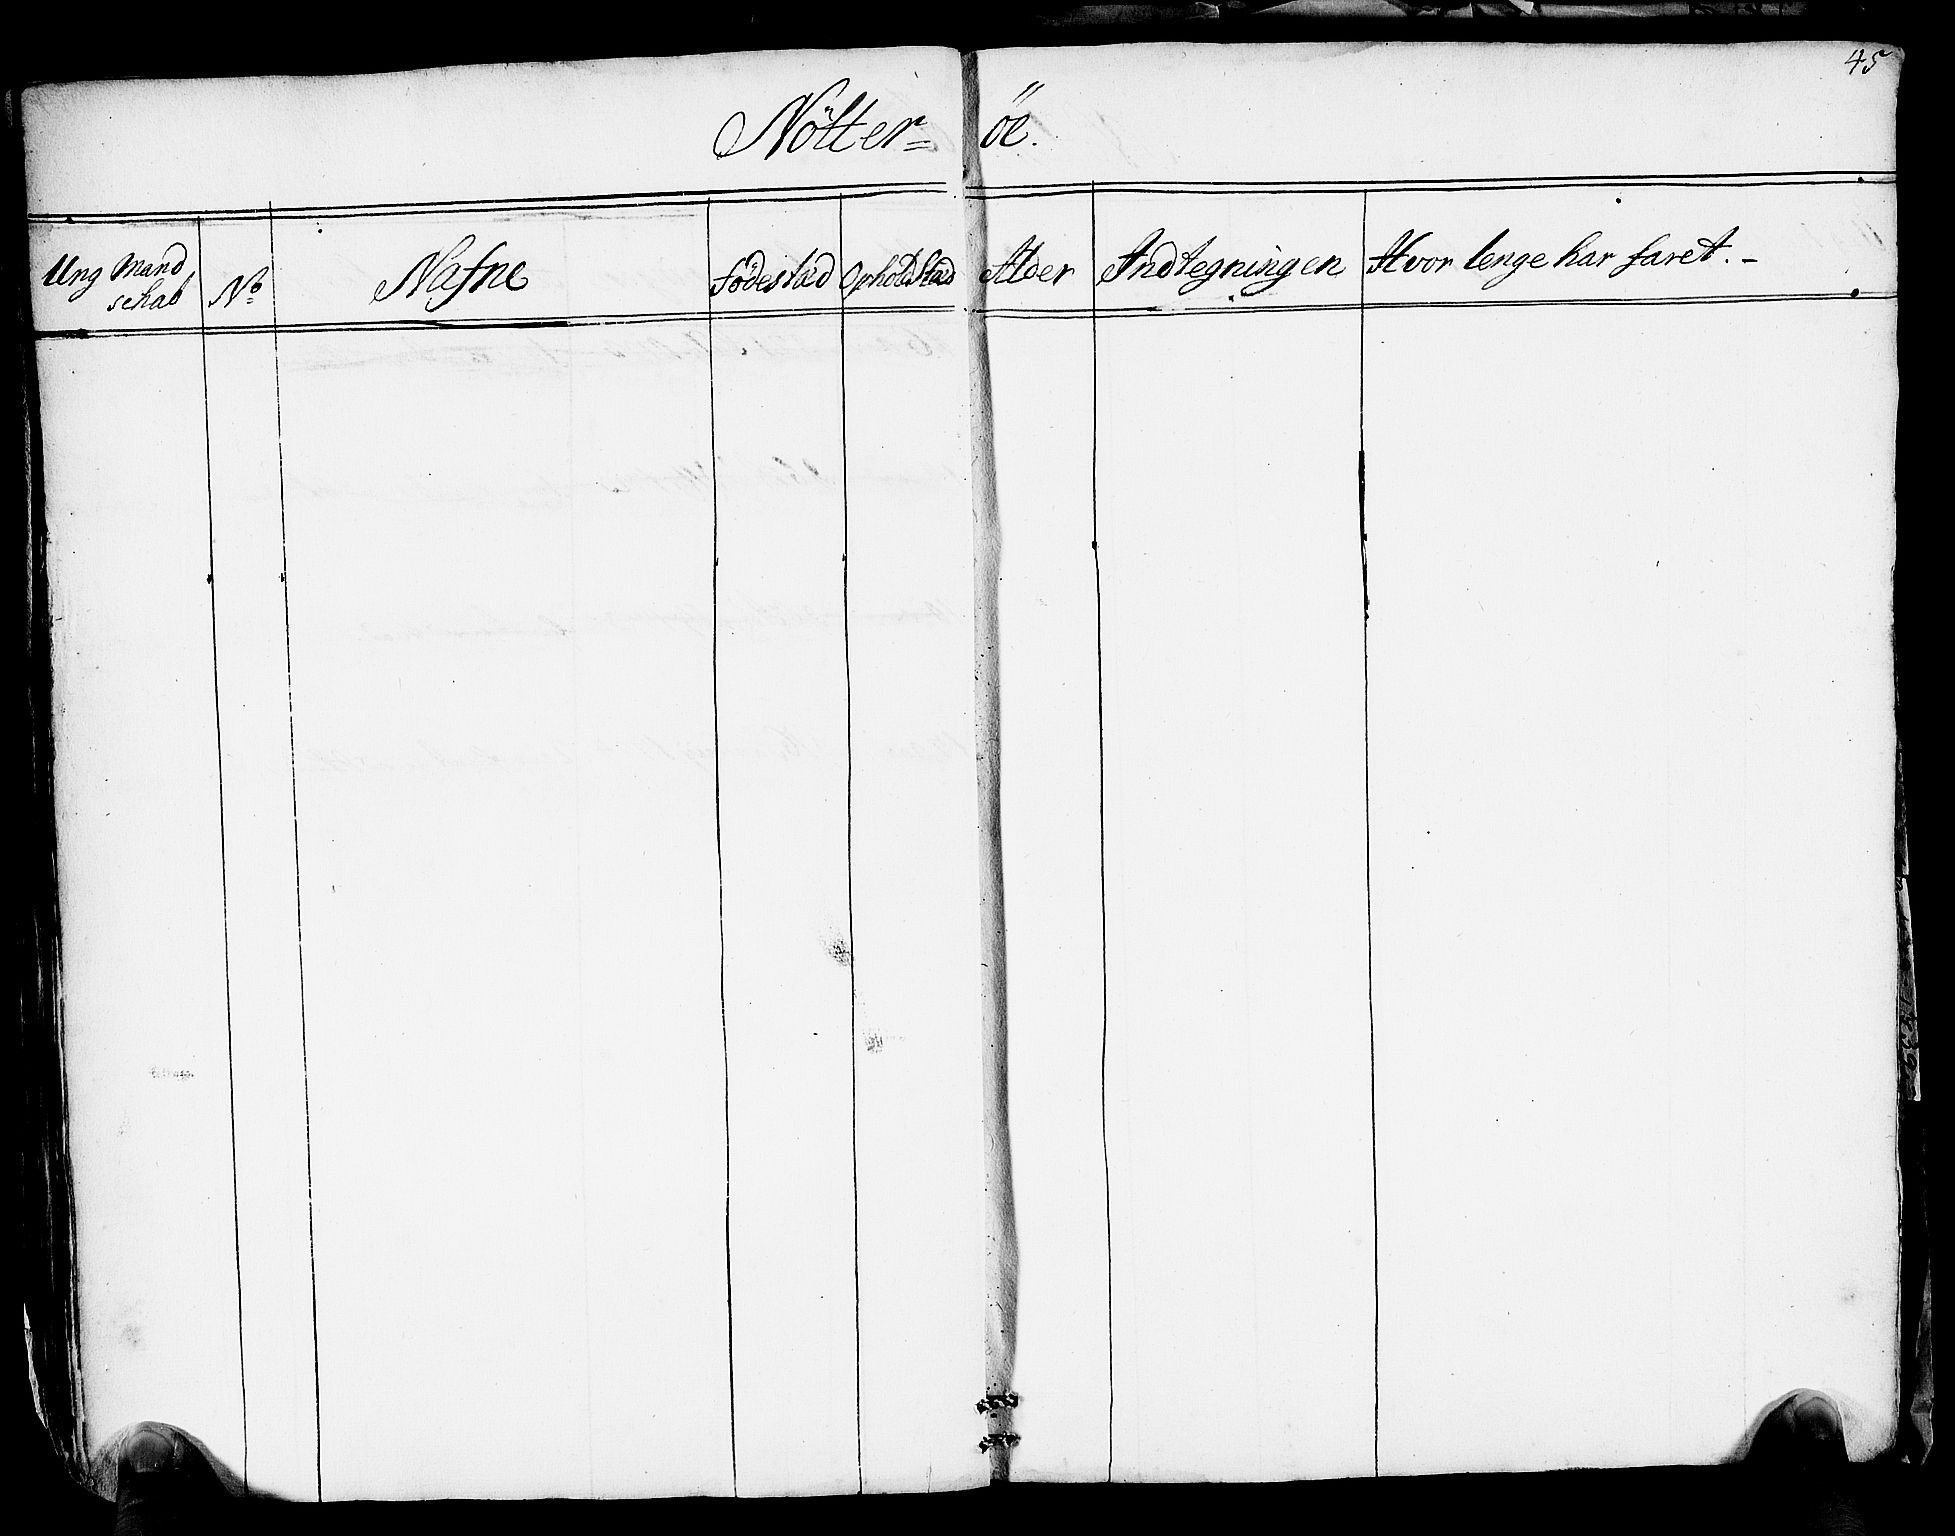 45
Nötter= öe.
Ung Mand schab No Nafne Födestæd Opholdstæd Alder Indtegningen Hvor lenge har faret.-